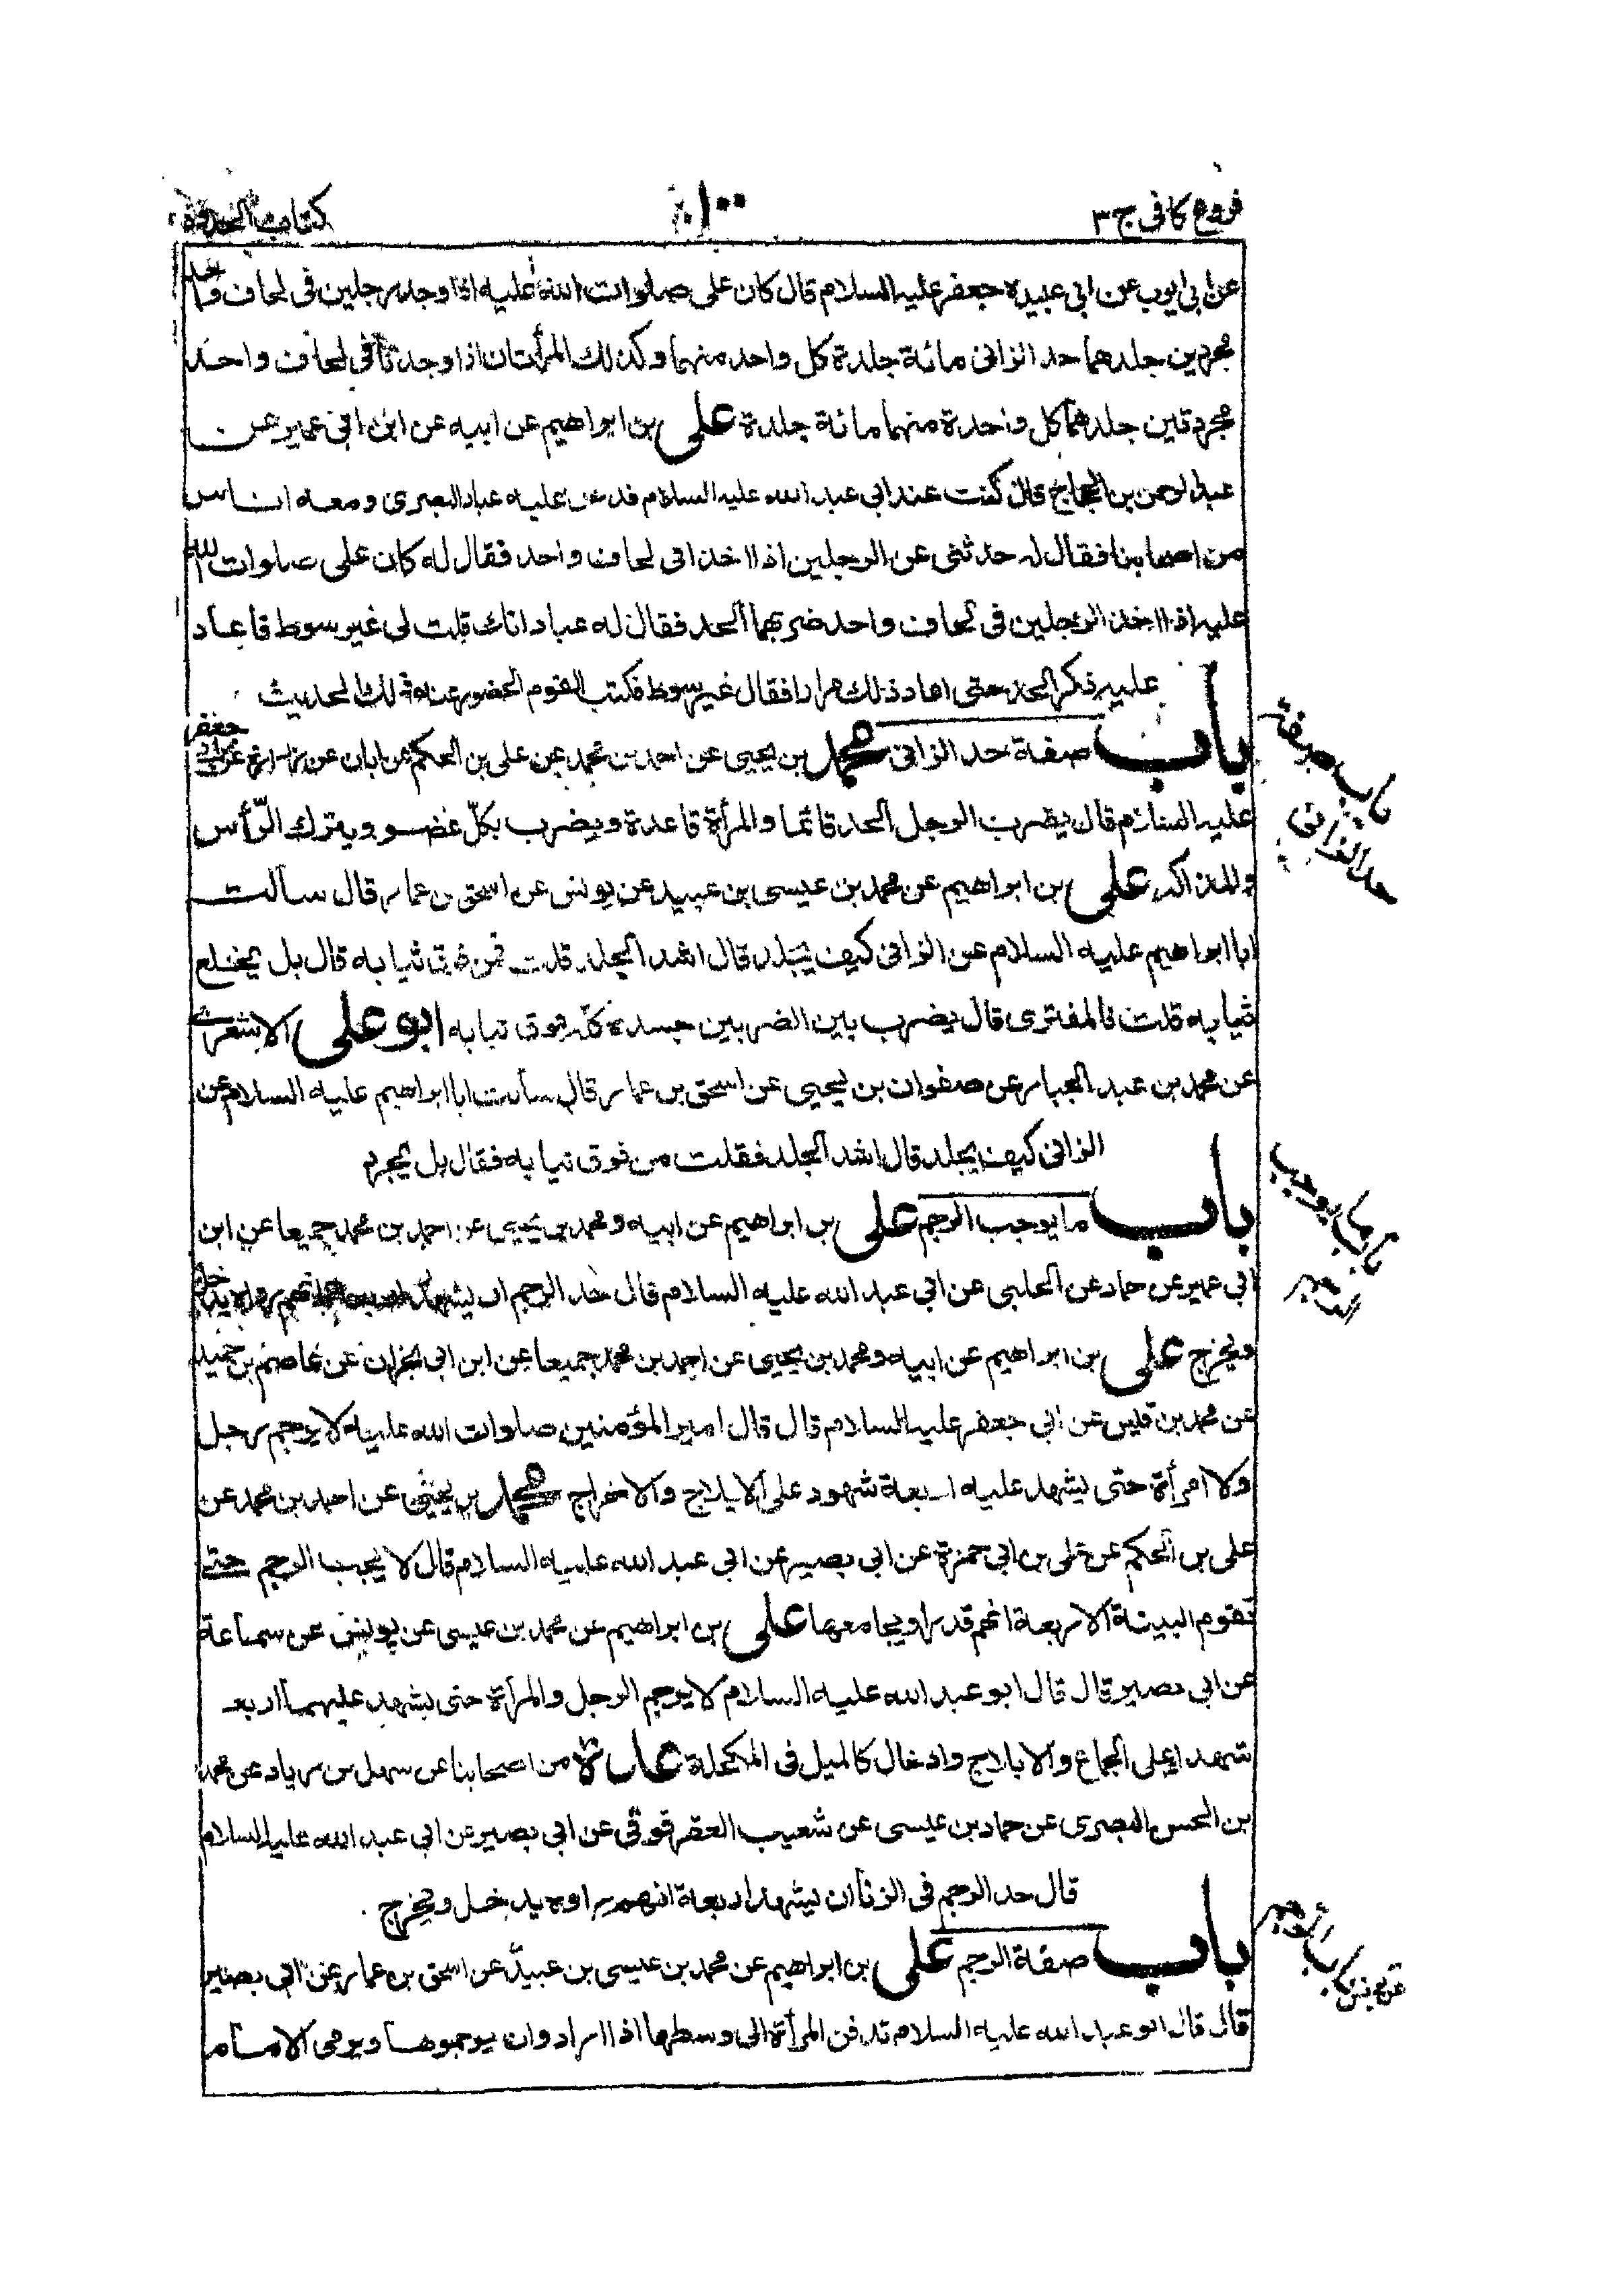 فروع كافى ج٣
١٠٠
كتاب الحدود
عن ابى ايوب عن ابى عبيدة جعفر عليه السلام قال كان على صلوات الله عليه اذا وجد رجلين فى لحاف واحد
مجردين جلدهما حد الزانى مائة جلدة كل واحد منهما وكذلك المرأتان اذا وجدتا فى لحاف واحد
مجردتين جلدهما كل واحدة منهما مائة جلدة على بن ابراهيم عن ابيه عن ابن ابى عمير عن
عبد الرحمن بن الحجاج قال كنت عند ابى عبد الله عليه السلام فدخل عليه عباد البصرى ومعه اناس
من اصحابنا فقال له حدثنى عن الرجلين اذا اخذا فى لحاف واحد فقال له كان على صلوات الله
عليه اذا اخذ الرجلين فى لحاف واحد ضربهما الحد فقال له عباد انك قلت لى غير سوط فاعاد
عليه ذكر الحد حتى اعاد ذلك مرارا فقال غير سوط فكتب القوم الحضور عند ذلك الحديث
باب صفة حد الزانى محمد بن يحيى عن احمد بن محمد عن على بن الحكم عن ابان عن زرارة عن ابى جعفر
عليه السلام قال يضرب الرجل الحد قائما والمرأة قاعدة ويضرب بكلّ عضو ويترك الرّأس
والمذاكير على بن ابراهيم عن محمد بن عيسى بن عبيد عن يونس عن اسحق بن عمار قال سألت
ابا ابراهيم عليه السلام عن الزانى كيف يجلد قال اشد الجلد قلت فمن فوق ثيابه قال بل يخلع
ثيابه قلت فالمفترى قال يضرب بين الضربين جسده كله فوق ثيابه ابو على الاشعرى
عن محمد بن عبد الجبار عن صفوان بن يحيى عن اسحق بن عمار قال سألت ابا ابراهيم عليه السلام عن
الزانى كيف يجلد قال اشد الجلد فقلت من فوق ثيابه فقال بل يجرد
باب ما يوجب الرجم على بن ابراهيم عن ابيه ومحمد بن يحيى عن احمد بن محمد جميعا عن ابن
ابى عمير عن حماد عن الحلبى عن ابى عبد الله عليه السلام قال حد الرجم ان يشهد اربعة انهم رأوه يدخل
ويخرج على بن ابراهيم عن ابيه ومحمد بن يحيى عن احمد بن محمد جميعا عن ابن ابى نجران عن عاصم بن حميد
عن محمد بن قيس عن ابى جعفر عليه السلام قال قال امير المؤمنين صلوات الله عليه لا يرجم رجل
ولا امرأة حتى يشهد عليه اربعة شهود على الايلاج والاخراج محمد بن يحيى عن احمد بن محمد عن
على بن الحكم عن على بن ابى حمزة عن ابى بصير عن ابى عبد الله عليه السلام قال لا يجب الرجم حتى
تقوم البينة الاربعة انهم قد راوه يجامعها على بن ابراهيم عن محمد بن عيسى عن يونس عن سماعة
عن ابى بصير قال قال ابو عبد الله عليه السلام لا يرجم الرجل والمرأة حتى يشهد عليهما اربعة
شهداء على الجماع والايلاج وادخال كالميل فى المكحلة عدة من اصحابنا عن سهل بن زياد عن محمد
بن الحسن البصرى عن حماد بن عيسى عن شعيب العقرقوفى عن ابى بصير عن ابى عبد الله عليه السلام
قال حد الرجم فى الزنا ان يشهد اربعة انهم راوه يدخل ويخرج
باب صفة الرجم على بن ابراهيم عن محمد بن عيسى بن عبيد عن اسحق بن عمار عن ابى بصير
قال قال ابو عبد الله عليه السلام تدفن المرأة الى وسطها اذا ارادوان يرجموها ويرمى الامام
باب صفة
حد الزانى
باب ما يوجب
الرجم
باب الرجم
عن يونس